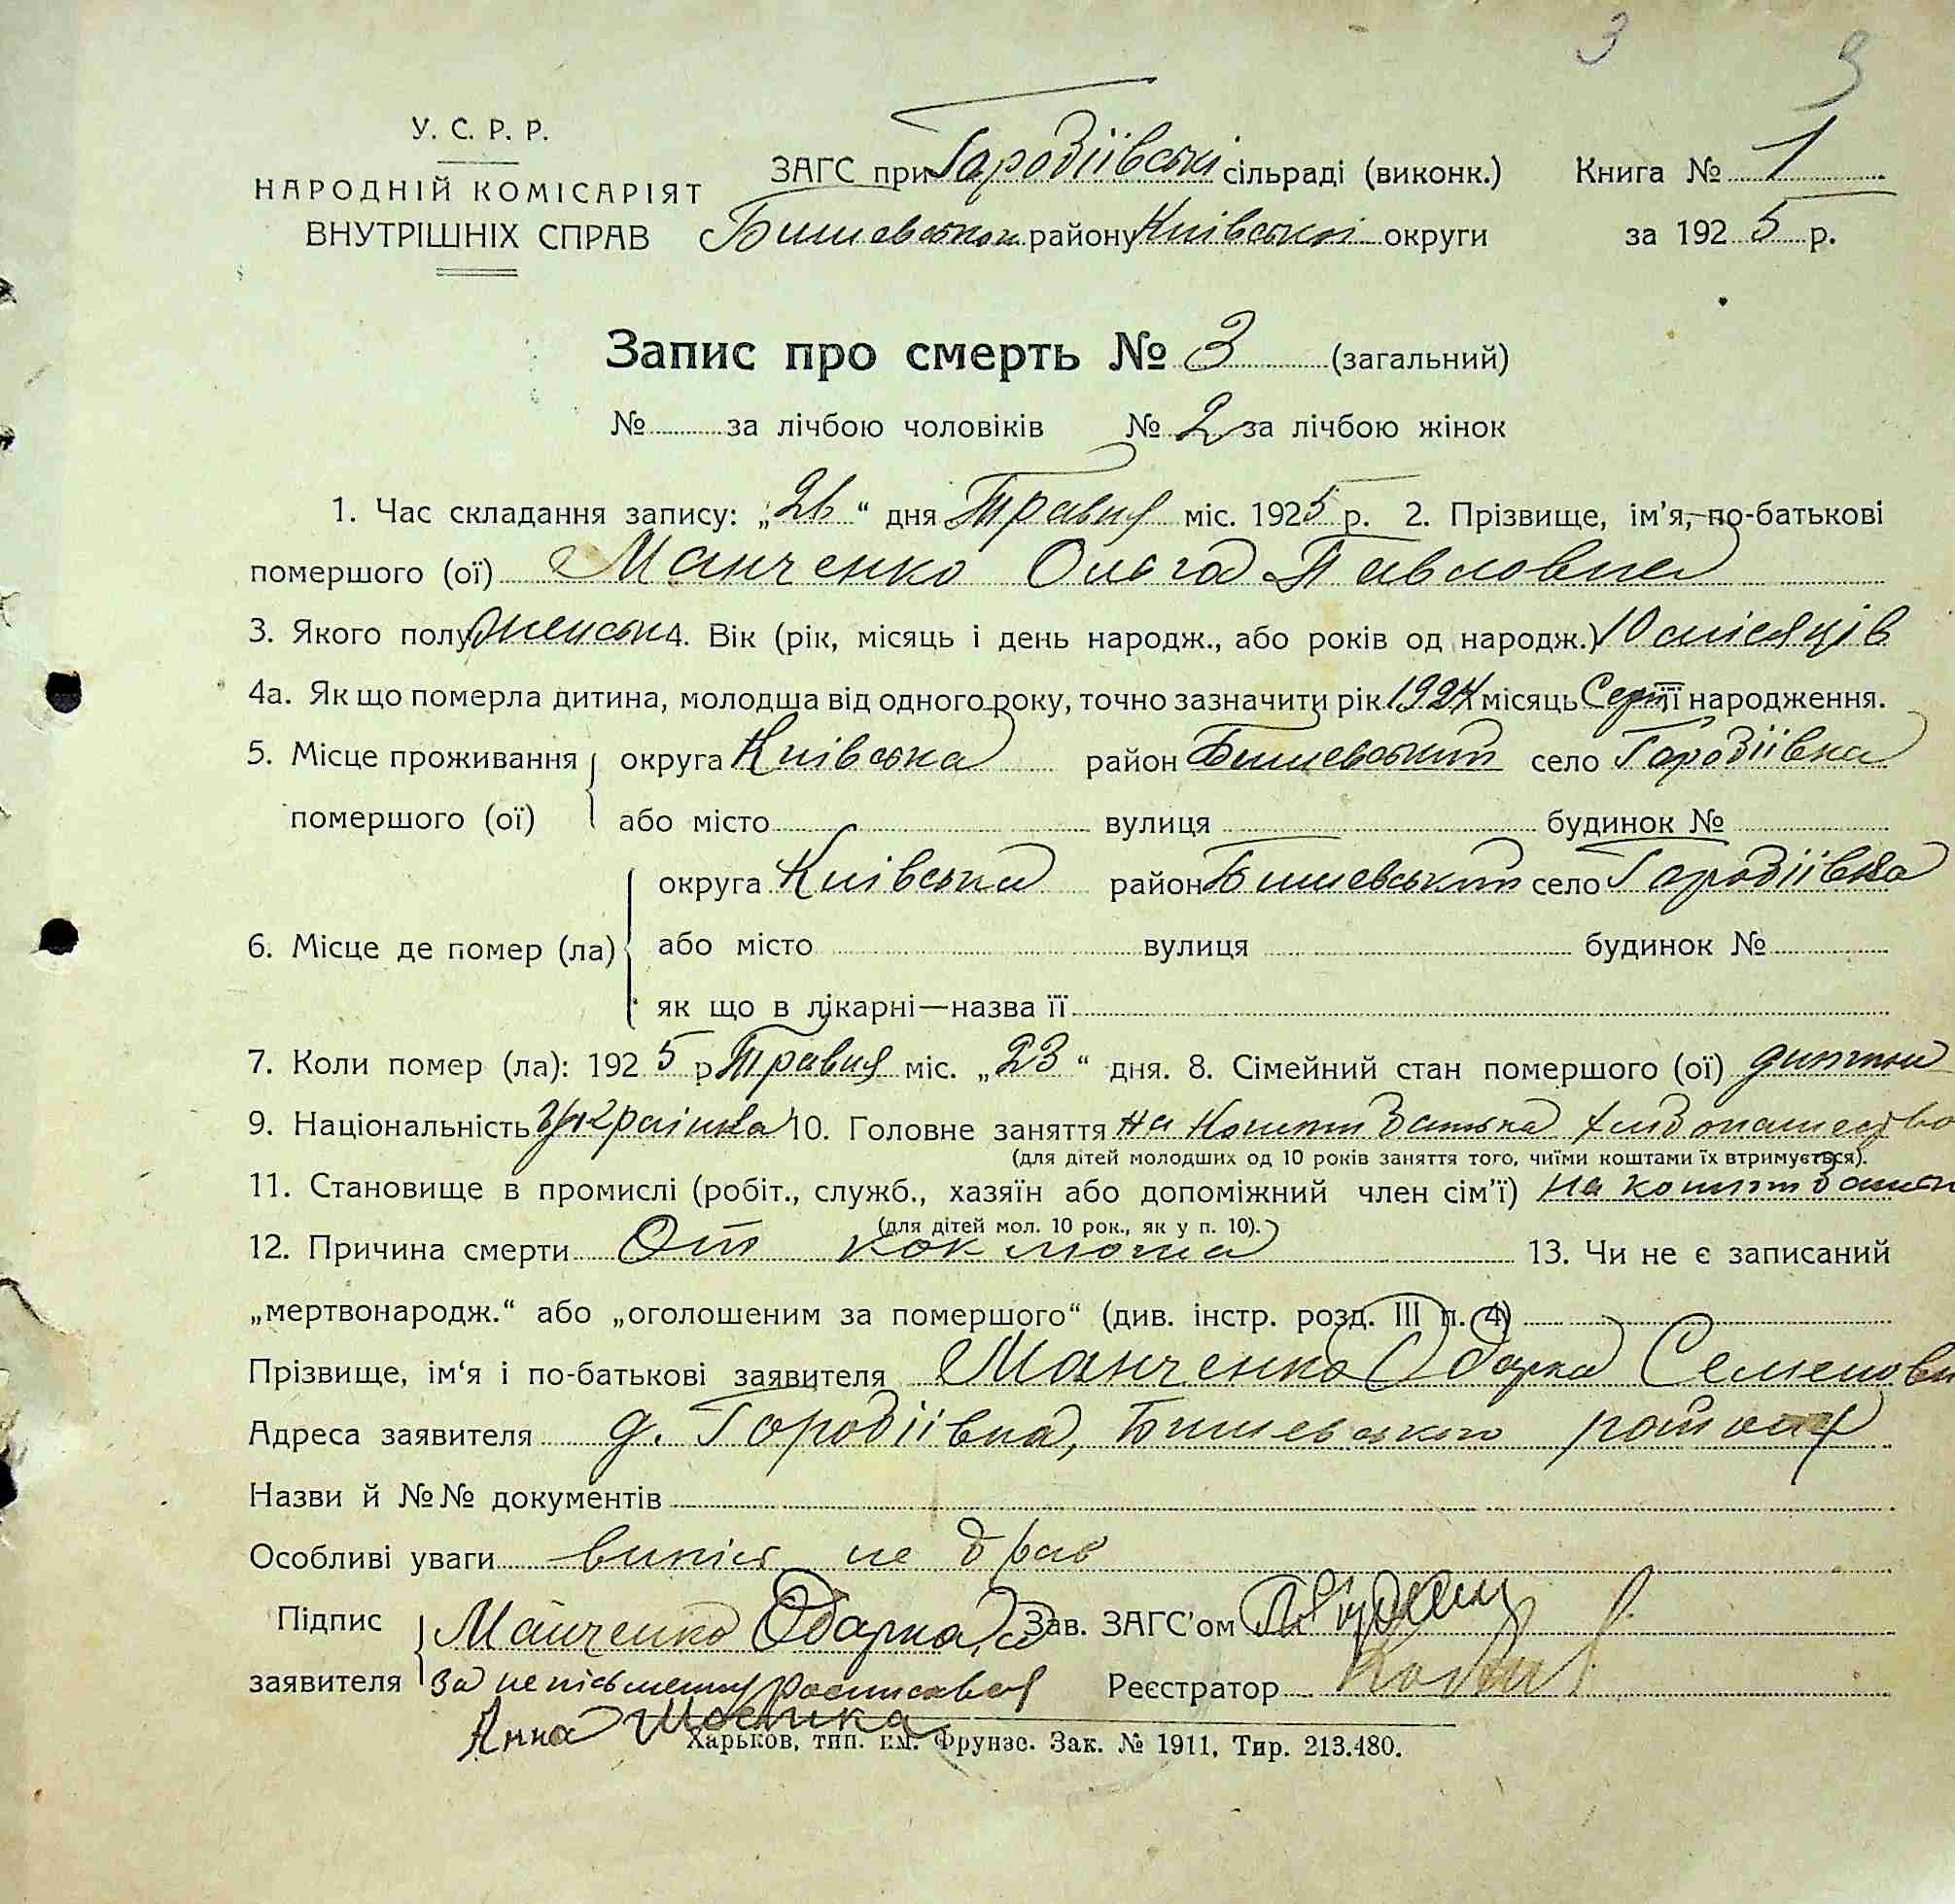 3 3
У. С. Р. Р.
НАРОДНІЙ КОМІСАРІЯТ
ВНУТРІШНІХ СПРАВ
ЗАГС при Городіївські сільраді (виконк.) Книга № 1
Бишевськом району Київські округи за 1925 р.
Запис про смерть № 3 (загальний)
№ за лічбою чоловіків № 2 за лічбою жінок
1. Час складання запису: „26“ дня Травня міс. 1925 р. 2. Прізвище, ім'я, по-батькові
помершого (ої) Манченко Ольга Павловна
3. Якого полу женська 4. Вік (рік, місяць і день народж., або років од народж.) 10 місяців
4а. Як що померла дитина, молодша від одного року, точно зазначити рік 1924 місяць її народження.
5. Місце проживання округа Київська район Бишевський село Городіївка
помершого (ої) або місто вулиця будинок №
округа Київська район Бишевський село Городіївка
6. Місце де помер (ла) або місто вулиця будинок №
як що в лікарні—назва її
7. Коли помер (ла): 1925 р Травня міс. „23“ дня. 8. Сімейний стан помершого (ої) дитина
9. Національність Українка 10. Головне заняття на кошти батька хлібопашество
(для дітей молодших од 10 років заняття того, чиїми коштами їх втримується).
11. Становище в промислі (робіт., служб., хазяїн або допоміжний член сім'ї) на кошти батьк
(для дітей мол. 10 рок., як у п. 10).
12. Причина смерти От коклюша 13. Чи не є записаний
„мертвонародж.“ або „оголошеним за помершого“ (див. інстр. розд. III п. 4)
Прізвище, ім'я і по-батькові заявителя Манченко Одарка Семеновн
Адреса заявителя д. Городіївка, Бишевського району
Назви й №№ документів
Особливі уваги випис не брав
Підпис Манченко Одарка, а Зав. ЗАГС'ом
заявителя за неписьменну росписався Реєстратор
Анна
Харьков, тип. им. Фрунзе. Зак. № 1911, Тир. 213.480.